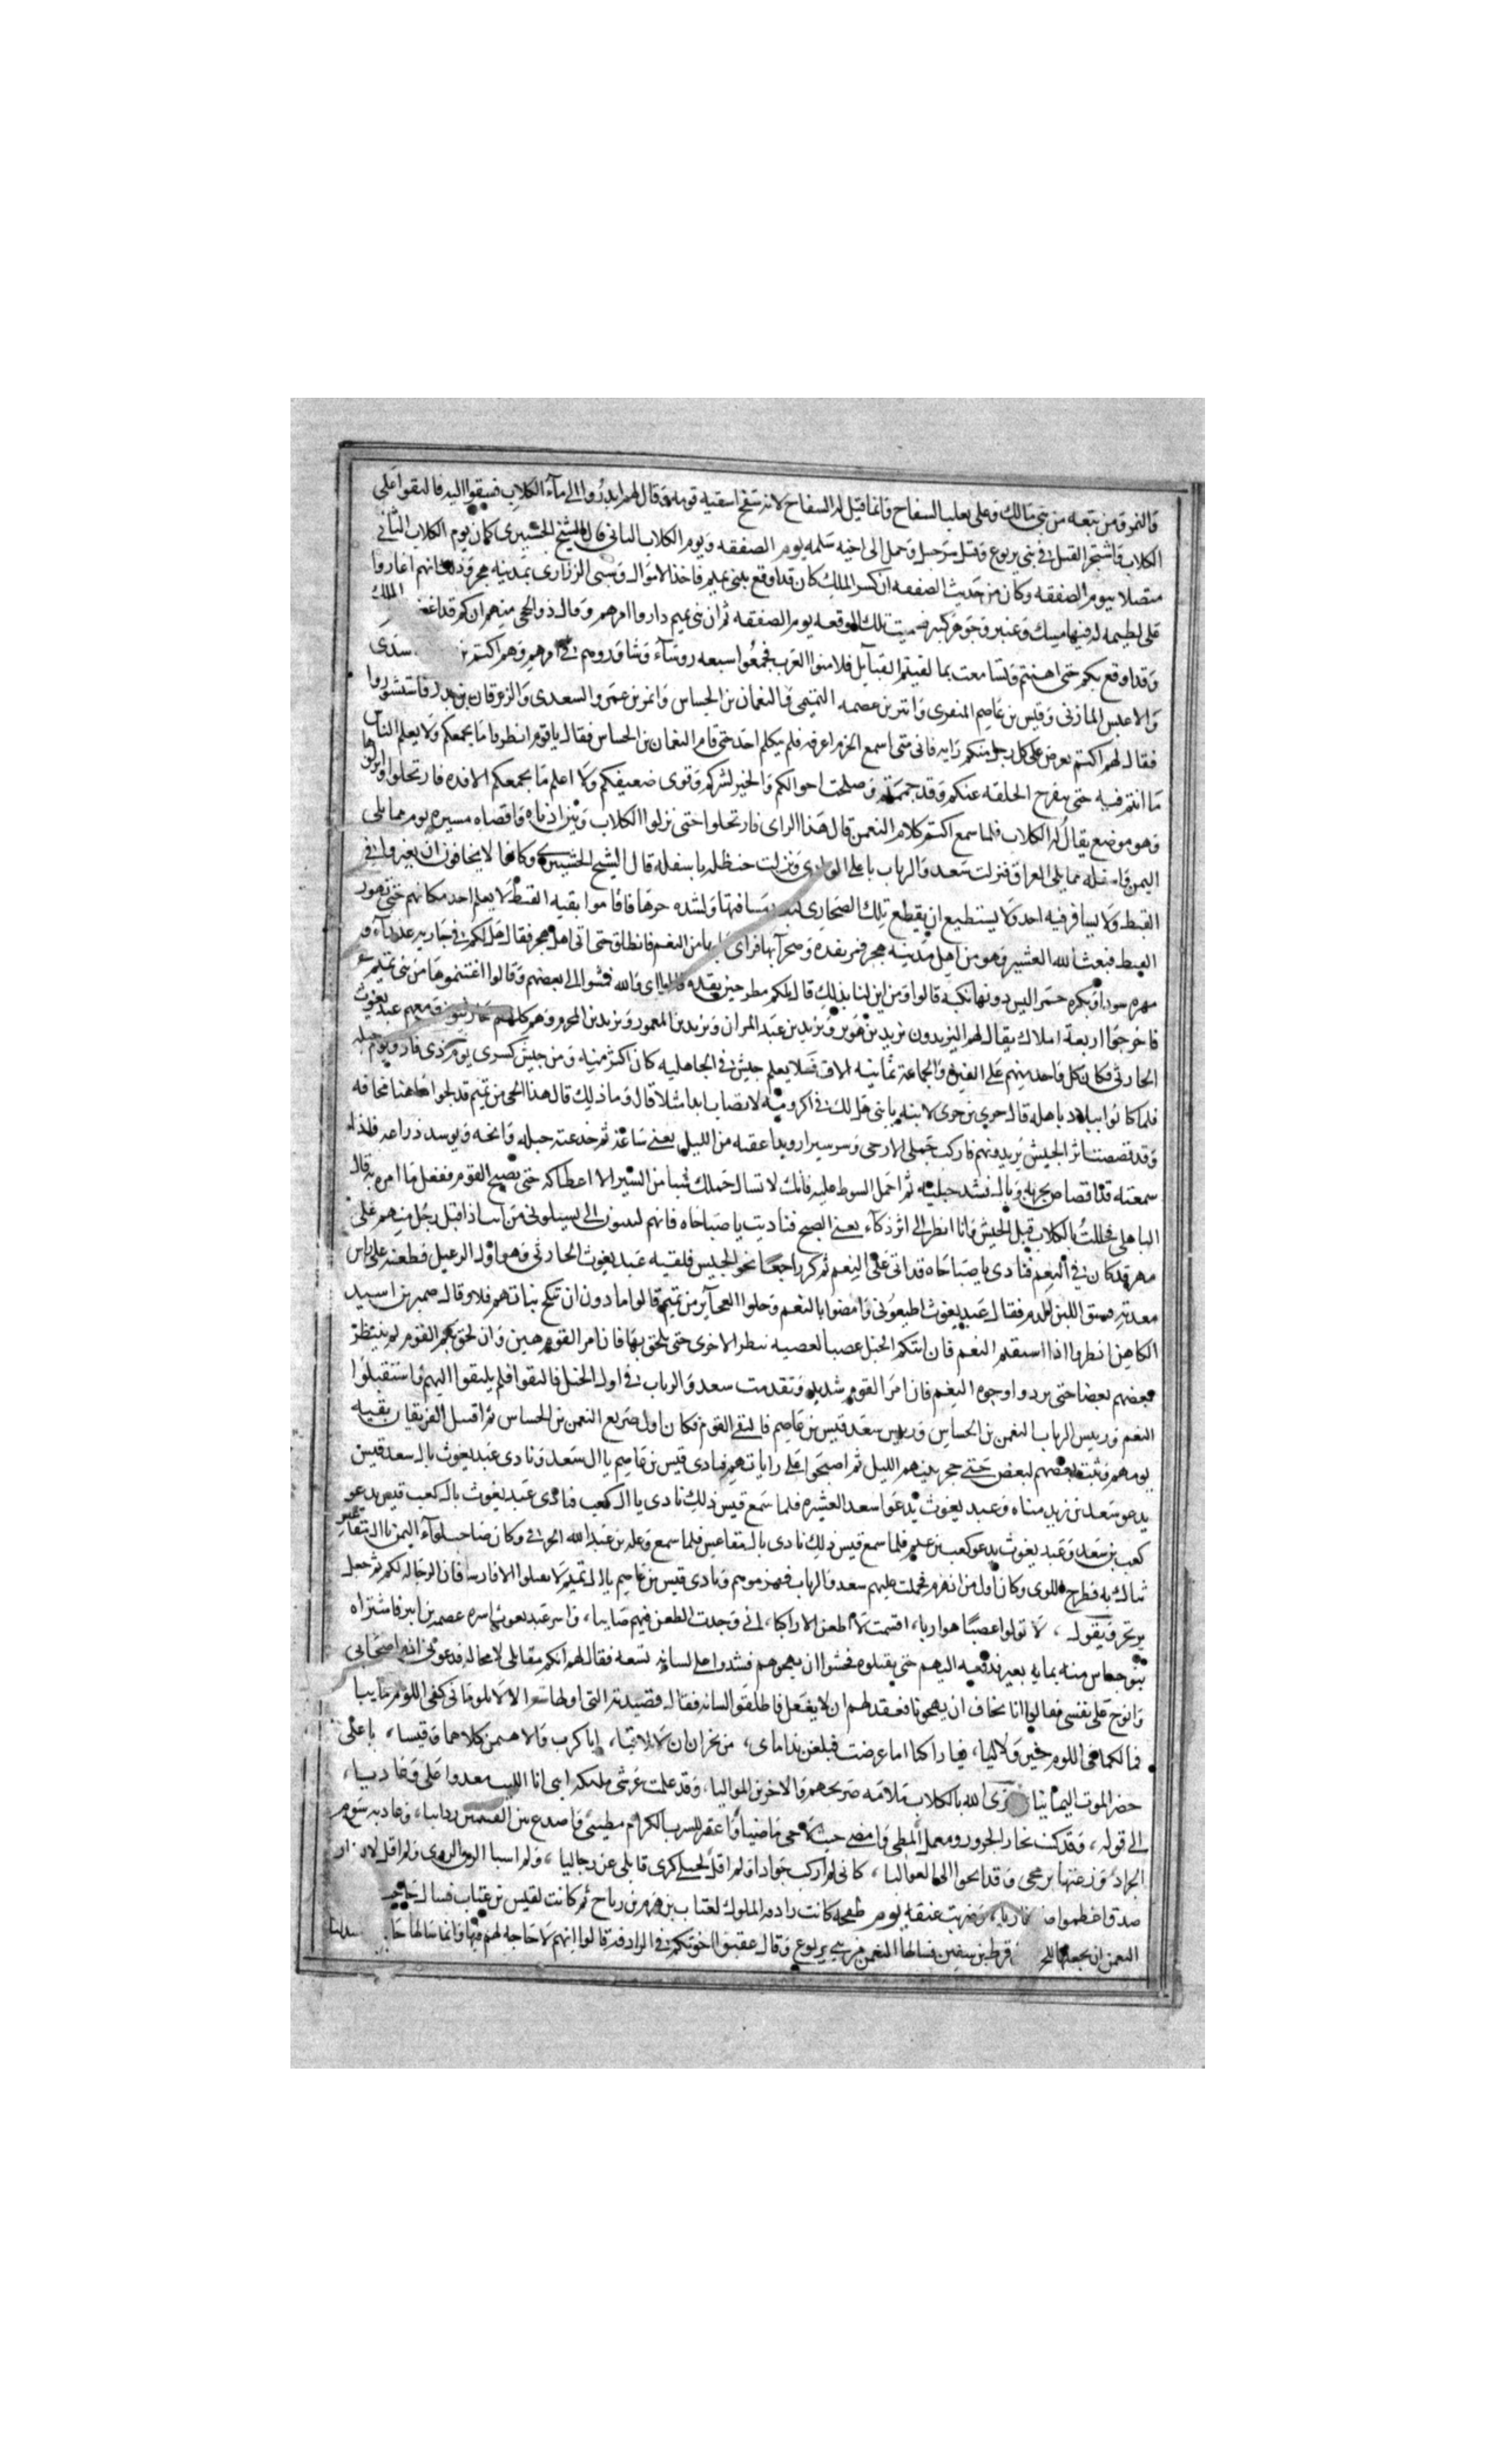 والنمر ومن تبعه من بني مالك وعلى تغلب السفاح وانما قيل له السفاح لانه سفح اسقيه قومه وقال لهم ابدروا الى مآء الكلاب فسبقوا اليه فالتقوا على
الكلاب فاشتحر القتل في بني يربوع وقتل شرحبيل وحمل الى اخيه سلمه يوم الصفقه ويوم الكلاب الثاني قال الشيخ كان يوم الكلاب الثاني
متصلا بيوم الصفقه وكان من حديث الصفقه ان كسرى الملك كان قد اوقع ببني تميم فاخذ الاموال وسبى الذراري بمدينه هجر وذلك انهم اغاروا
على لطيمه له فيها مسك وعنبر وجوهر كثير فسميت تلك الوقعه يوم الصفقه ثم ان بني تميم داروا امرهم وقال ذو الحجى منهم انكم قد اغضبتم الملك
وقد اوقع بكم حتى اهنتم وتسامعت بما لقيتم القبآيل فلا تامنوا العرب فجمعوا سبعه روسآء وشاوروهم في امرهم وهم اكثم بن
والاعيس المازني وقيس بن عاصم المنقري وانتر بن عصمه التميمي والنعمان بن الحساس وابمر بن عمرو السعدي والزبرقان بن بدر فاستشوروا
فقال لهم اكثم يعرض على كل رجل منكم رايه فاني متى اسمع الحزم اعرفه فلم يتكلم احد حتى قام النعمان بن الحساس فقال ياقوم انظروا ما يجمعكم ولا يعلم الناس
ما انتم فيه حتى تنفرج الحلقه عنكم وقد جممتم وصلحت احوالكم وانجبر كسركم وقوى ضعيفكم ولا اعلم ما يجمعكم الا قده فارتحلوا وانزلوا
وهو موضع يقال له الكلاب فلما سمع اكثم كلام النعمن قال هذا الراي فارتحلوا حتى نزلوا الكلاب وبين ادناه واقصاه مسيره يوم مما يلي
اليمن واسفله مما يلي العراق فنزلت سعد والرباب باعلى الوادي ونزلت حنظله باسفله قال الشيخ وكانوا لا يخافون ان يغزوا في
القيظ ولا يسافر فيه احد ولا يستطيع ان يقطع تلك الصحارى لبعد مسافتها ولشده حرها فاقاموا بقيه القيظ لا يعلم احد مكانهم حتى تهور
القيظ فبعث الله العشير وهو من اهل مدينه هجر فمر بقده وصحرآيها فراى ما بها من النعم فانطلق حتى اتى اهل هجر فقال هل لكم في جاريه عذرآء و
مهره سودآ وبكره حمرآ ليس دونها نكبه قالوا ومن اين لنا بذلك قال تلكم تميم مطرحين بقده قالوا اي والله فمشوا الى بعضهم وقالوا اغتنموها من بني تميم
فاخرجوا اربعة املاك يقال لهم اليزيدون يزيد بن هوبر ويزيد بن عبد المدان ويزيد بن المامور ويزيد بن المخرم وهم كلهم حارثيون ومعهم عبد يغوث
الحارثي وكان كل واحد منهم على الفين والجماعة ثمانيه الاف فلا يعلم جيش في الجاهليه كان اكثر منه ومن جيش كسرى يوم ذي قار ويوم جبله
فلما كانوا ببلاد باهله قال جزي بن جزى لابنه يا بني هل لك في اكرومه لا يصاب ابدا مثلها قال وما ذاك قال هذا الحي من تميم قد لجوا هاهنا مخافه
وقد قصصت اثر الجيش يريدونهم فاركب جملي الارحبي وسر سيرا رويدا عقبه من الليل يعني ساعة ثم خذ عنه حبليه وانخه وتوسد ذراعه فاذا
سمعته قد افاض بجرته وبال فشد حبليه ثم احمل السوط عليه فانك لا تسال جملك شيا من السير الا اعطاكه حتى تصبح القوم ففعل ما امره به قال
الباهلي فحللت بالكلاب قبل الجيش وانا انظر الى ابن ذكآء يعني الصبح فناديت يا صباحاه فانهم ليثبون الي ليسيلوني من انت اذ اقبل رجل منهم على
مهر قد كان في النعم فنادى يا صباحاه قد اتى على النعم ثم كر راجعا نحو الجيس فلقيه عبد يغوث الحارثي وهو اول الرعيل فطعنه على راس
معدته فسبق اللبن الدم فقال عبد يغوث اطيعوني وامضوا بالنعم وخلوا العجآيز من تميم قالوا اما دون ان ننكح بناتهم فلا وقال ضمر بن اسيد
الكاهن انظروا اذا استقتم النعم فان اتتكم الخيل عصبا العصبه تنتظر الاخرى حتى يلحق بها فان امر القوم هين وان لحق بكم القوم لم ينتظر
بعضهم بعضا حتى يردوا وجوه النعم فان امر القوم شديد وتقدمت سعد والرباب في اول الخيل فالتقوا فلم يلتفتوا اليهم واستقبلوا
النعم ورييس الرباب النعمن بن الحساس ورييس سعد قيس بن عاصم فالتقى القوم فكان اول صريع النعمن بن الحساس ثم اقتتل الفريقان بقيه
يومهم وثبت بعضهم لبعض حتى حجز بينهم الليل ثم اصبحوا على راياتهم فنادى قيس بن عاصم يا ال سعد ونادى عبد يغوث يال سعد قيس
يدعو سعد بن زيد مناه وعبد يغوث يدعوا سعد العشيره فلما سمع قيس ذلك نادى يا ال كعب فنادى عبد يغوث يال كعب قيس يدعو
كعب بن سعد وعبد يغوث يدعو كعب بن عمرو فلما سمع قيس ذلك نادى يال مقاعس فلما سمع وعله بن عبد الله الجرمي وكان صاحب لوآء اليمن يا ال مقاعس
تفآل به فطرح اللوى وكان اول من انهزم فحملت عليهم سعد والرباب فهزموهم ونادى قيس بن عاصم يال تميم لا تقتلوا الا فارسا فان الرجاله لكم ثم جعل
يرتجز ويقول ، لا تولوا عصبا هواربا ، اقسمت لا اطعن الا راكبا ، اني وجدت الطعن فيهم صايبا ، واسر عبد يغوث اسره عصمه بن ابير فاشتراه
بنو جساس منه بمايه بعير فدفعه اليهم حتى يقتلوه فخشوا ان يهجوهم فشدوا على لسانه نسعه فقال لهم انكم مقاتلي لا محاله فدعوني اذم اصحابي
وانوح على نفسي فقالوا انا نخاف ان يهجونا فعقد لهم ان لا يفعل فاطلقوا لسانه فقال قصيدته التي اولها شعر الا لا تلوماني كفى اللوم ما بيا
فما لكما في اللوم خير ولا ليا ، فيا راكبا اما عرضت فبلغن نداماي ، من نجران ان لا تلاقيا ، ابا كرب والايهمين كلاهما وقيسا ، باعلى
حضر الموت اليمانيا جزى الله بالكلاب ملامه صريحهم والاخرين المواليا ، وقد علمت عرسي مليكه انني انا الليث معدوا علي وعاديا ،
الى قوله ، وقد كنت نحار الجزور ومعمل المطي وامضي حيث لا حي ماضيا واعقر للشرب الكرام مطيتي واصدع بين القينتين ردآيبا ، وعاديه سوم
الجراد وزعتها برمحي وقد انحوا الي العواليا ، كاني لم اركب جوادا ولم اقل لخيلي كري قاتلي عن رجاليا ، ولم اسبا الزق الروي ولم اقل لايسار
صدق اعظموا ضوء ناريا ، وضربت عنقه يوم طخفه كانت ردافه الملوك لعتاب بن هرمي بن رياح ثم كانت لقيس بن عتاب فسال حاجب
النعمن ان يجعلها للحارث بن قرط بن سفين فسالها النعمن من بني يربوع وقال عقبوا اخوتكم في الرادفه قالوا انهم لا حاجه لهم فيها وانما سالها حاجب حسدا لنا